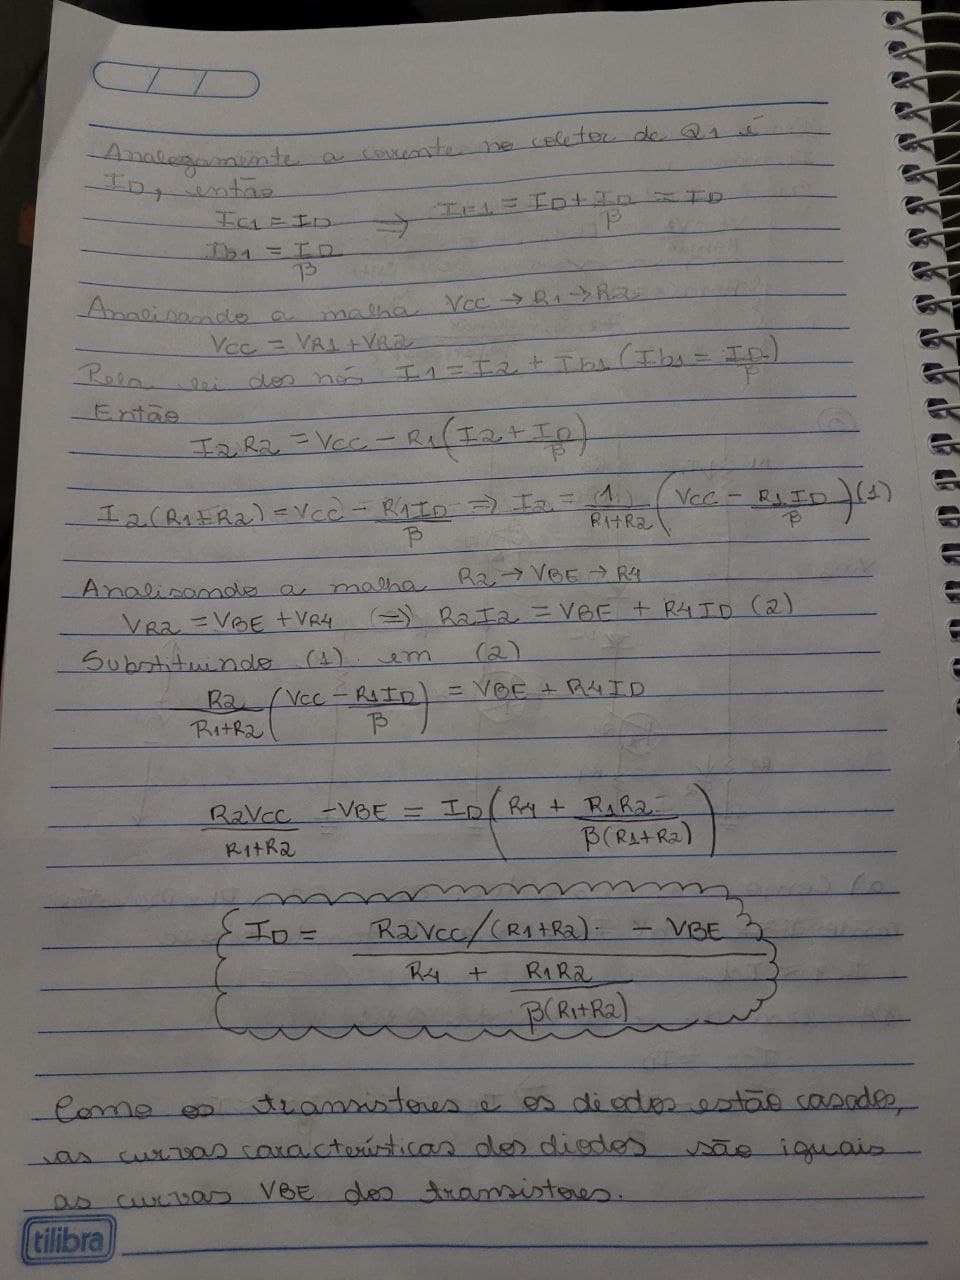 Analogamente a corrente no coletor de Q1 é
ID, então
IC1 = ID ⇒ IE1 = ID + ID/β ≅ ID
Ib1 = ID/β
Analisando a malha VCC → R1 → R2
VCC = VR1 + VR2
Pela lei dos nós I1 = I2 + Ib1 (Ib1 = ID/β)
Então
I2 R2 = VCC - R1 (I2 + ID/β)
I2 (R1 + R2) = VCC - R1 ID/β ⇒ I2 = 1/(R1+R2) (VCC - R1 ID/β) (1)
Analisando a malha R2 → VBE → R4
VR2 = VBE + VR4 (⇒) R2 I2 = VBE + R4 ID (2)
Substituindo (1) em (2)
R2/(R1+R2) (VCC - R1 ID/β) = VBE + R4 ID
R2 VCC/(R1+R2) - VBE = ID (R4 + R1R2/β(R1+R2))
ID = (R2 VCC/(R1+R2) - VBE)/(R4 + R1R2/β(R1+R2))
Como os transistores e os diodos estão casados,
as curvas características dos diodos são iguais
as curvas VBE dos transistores.
tilibra